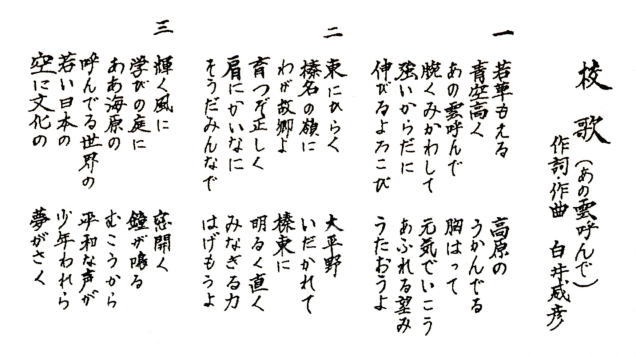 校歌（あの雲呼んで）
作詞・作曲 白井咸彦
一
若草もえる 高原の
青空高く うかんでる
あの雲呼んで 胸はって
腕くみかわして 元気でいこう
強いからだに あふれる望み
伸びるよろこび うたおうよ
二
東にひらく 大平野
榛名の嶺に いだかれて
わが故郷よ 榛東に
育つぞ正しく 明るく直く
肩にかいなに みなぎる力
そうだみんなで はげもうよ
三
輝く風に 窓開く
学びの庭に 鐘が鳴る
ああ海原の むこうから
呼んでる世界の 平和な声が
若い日本の 少年われら
空に文化の 夢がさく